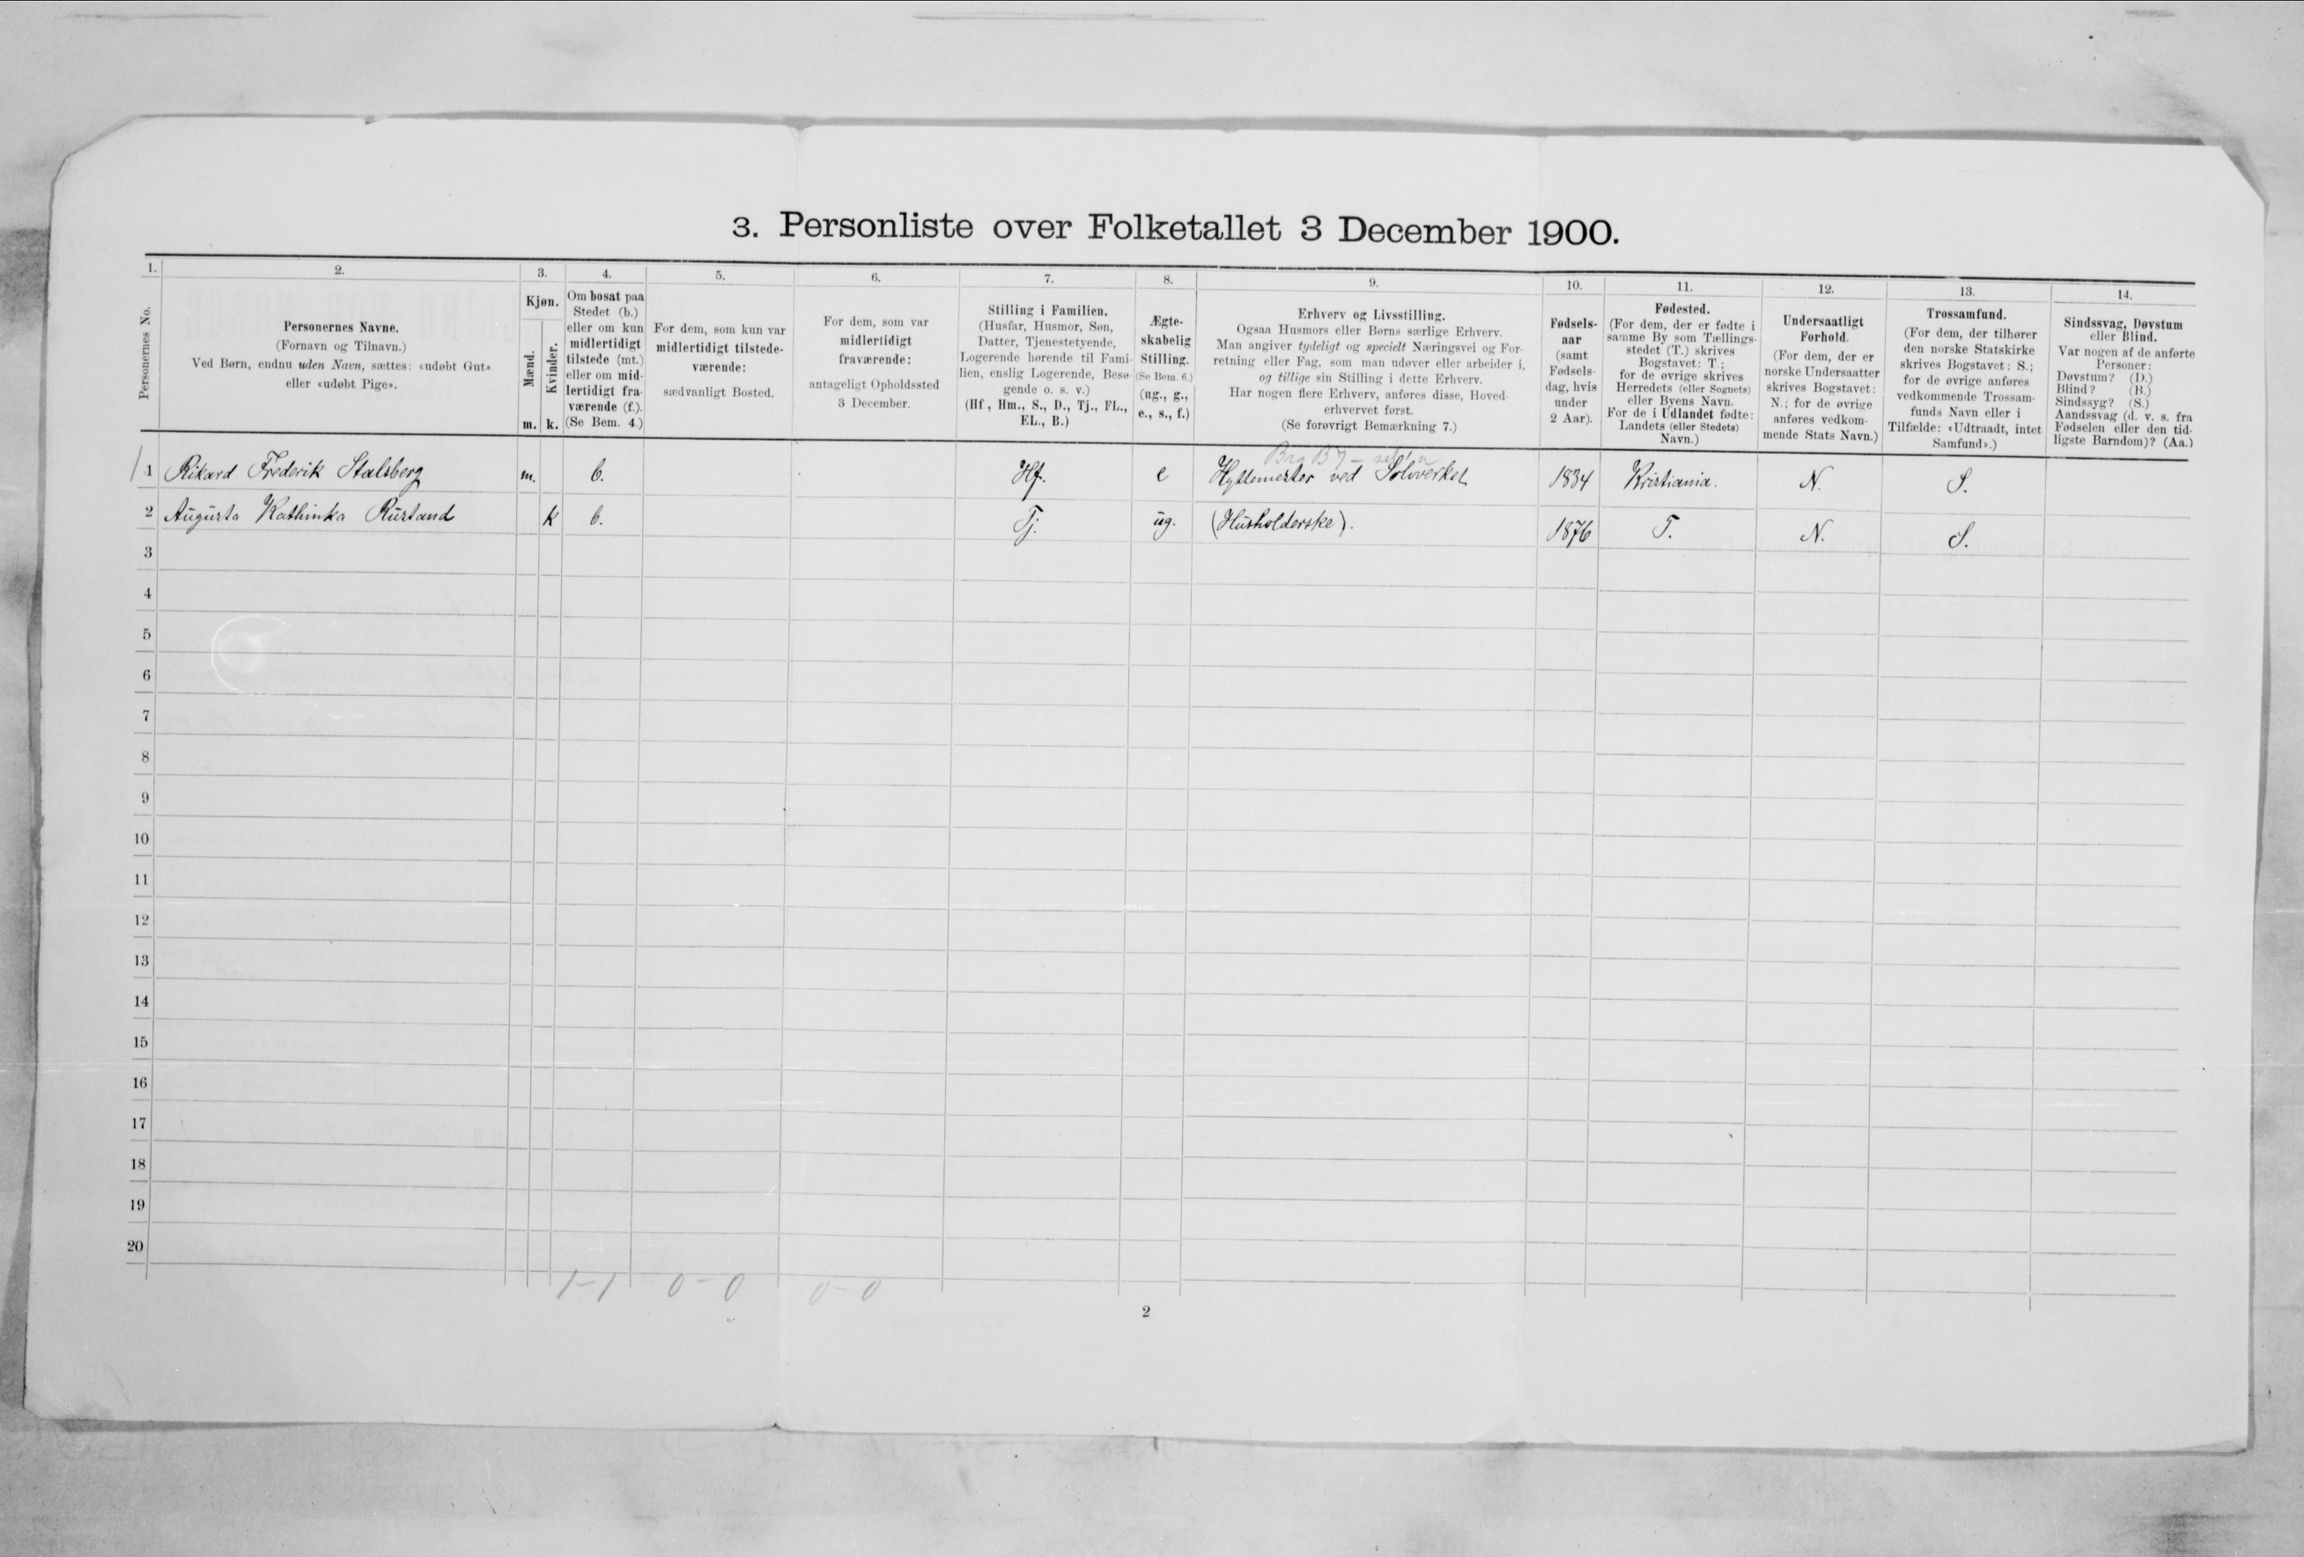 3. Personliste over Folketallet 3 December 1900.
1. 2. 3. 4. 5. 6. 7. 8. 9. 10. 11. 12. 13. 14.
Personernes No.
Personernes Navne.
(Fornavn og Tilnavn.)
Ved Børn, endnu uden Navn, sættes: «udøbt Gut»
eller «udøbt Pige».
Kjøn.
Mænd.
Kvinder.
m. k.
Om bosat paa
Stedet (b.)
eller om kun
midlertidigt
tilstede (mt.)
eller om mid-
lertidigt fra-
værende (f.).
(Se Bem. 4.)
For dem, som kun var
midlertidigt tilstede-
værende:
sædvanligt Bosted.
For dem, som var
midlertidigt
fraværende:
antageligt Opholdssted
3 December.
Stilling i Familien.
(Husfar, Husmor, Søn,
Datter, Tjenestetyende,
Logerende hørende til Fami-
lien, enslig Logerende, Besø-
gende o. s. v.)
(Hf, Hm., S., D., Tj., FL.,
EL., B.)
Ægte-
skabelig
Stilling.
(Se Bem. 6.)
(ug., g.,
e., s., f.)
Erhverv og Livsstilling.
Ogsaa Husmors eller Børns særlige Erhverv.
Man angiver tydeligt og specielt Næringsvei og For-
retning eller Fag, som man udøver eller arbeider i,
og tillige sin Stilling i dette Erhverv.
Har nogen flere Erhverv, anføres disse, Hoved-
erhvervet først.
(Se forøvrigt Bemærkning 7.)
Fødsels-
aar
(samt
Fødsels-
dag, hvis
under
2 Aar).
Fødested.
(For dem, der er fødte i
samme By som Tællings-
stedet (T.) skrives
Bogstavet: T.;
for de øvrige skrives
Herredets (eller Sognets)
eller Byens Navn.
For de i Udlandet fødte:
Landets (eller Stedets)
Navn.)
Undersaatligt
Forhold.
(For dem, der er
norske Undersaatter
skrives Bogstavet:
N.; for de øvrige
anføres vedkom-
mende Stats Navn.)
Trossamfund.
(For dem, der tilhører
den norske Statskirke
skrives Bogstavet: S.;
for de øvrige anføres
vedkommende Trossam-
funds Navn eller i
Tilfælde: «Udtraadt, intet
Samfund».)
Sindssvag, Døvstum
eller Blind.
Var nogen af de anførte
Personer:
Døvstum? (D.)
Blind? (B.)
Sindssyg? (S.)
Aandssvag (d. v. s. fra
Fødselen eller den tid-
ligste Barndom)? (Aa.)
1 Rikard Frederik Stalsberg m. b. Hf. e Hyttemester ved Sølvverket 1834 Kristiania. N. S.
2 Augusta Kathinka Rustand k b. Tj. ug. (Husholderske). 1876 T. N. S.
3
4
5
6
7
8
9
10
11
12
13
14
15
16
17
18
19
20
1-1 0-0 0-0
2